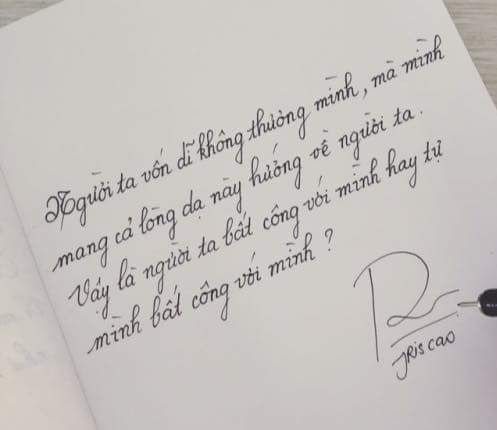 Người ta vốn dĩ không thương mình, mà mình
mang cả lòng dạ này hướng về người ta.
Vậy là người ta bất công với mình hay tự
mình bất công với mình?
JRis cao